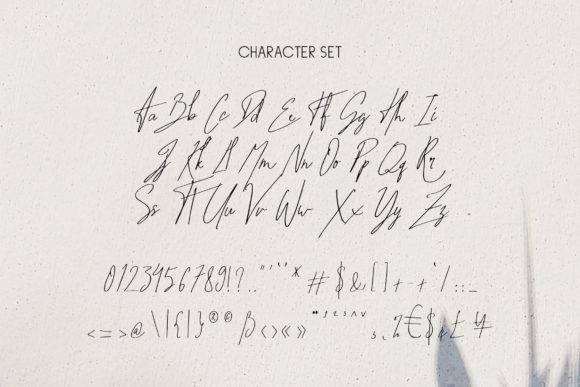 CHARACTER SET
Aa Bb Cc Dd Ee Ff Gg Hh Ii
Jj Kk Ll Mm Nn Oo Pp Qq Rr
Ss Tt Uu Vv Ww Xx Yy Zz
0123456789!?..
#$&[]+-+ /:;_
<=>@\|{|}®© β‹›«»
€$ £ ¥